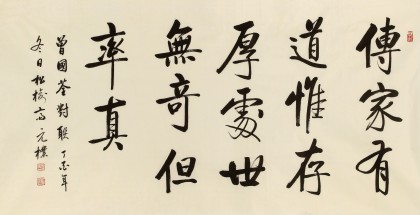 傳家有
道惟存
厚處世
無奇但
率真
曾國荃對聯 年
冬日松高元樸